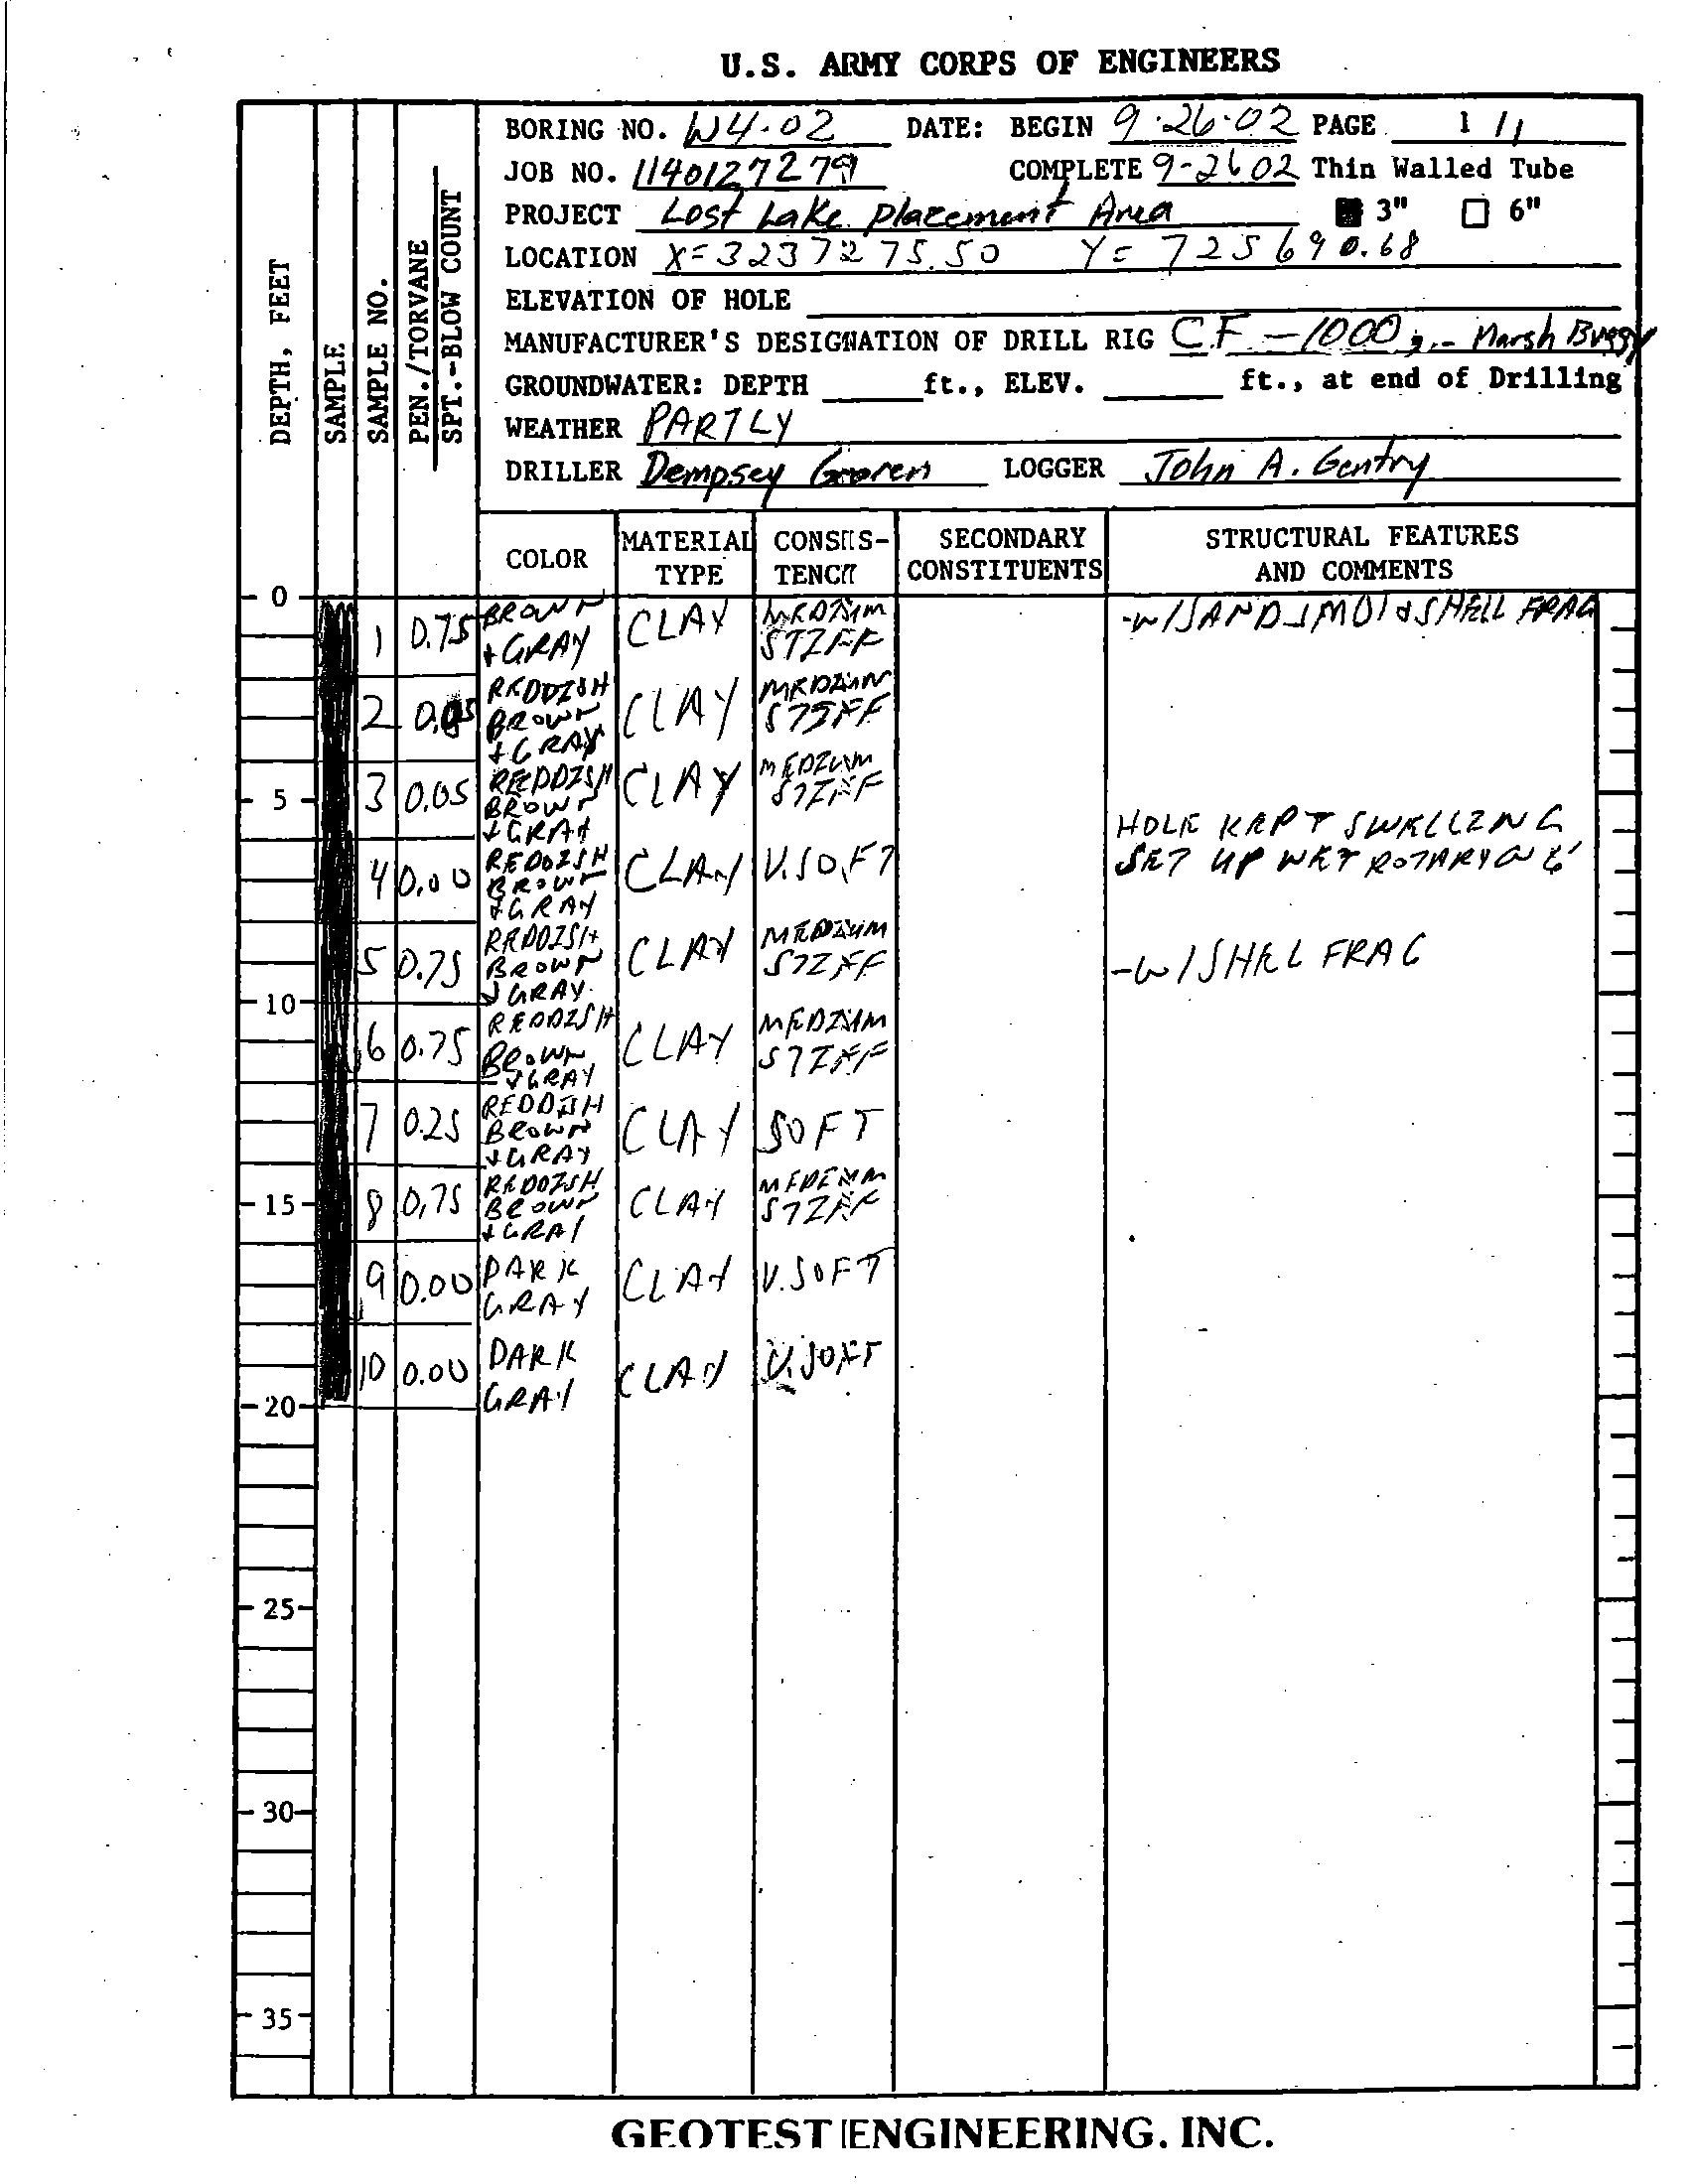 U.S. ARMY CORPS OF ENGINEERS
BORING NO. W4-02 DATE: BEGIN 9-26-02 PAGE 1 / 1
JOB NO. 1140127279 COMPLETE 9-26-02 Thin Walled Tube
PROJECT Lost Lake Placement Area 3" 6"
LOCATION X=3237275.50 Y=725690.68
ELEVATION OF HOLE
MANUFACTURER'S DESIGNATION OF DRILL RIG C.F. -1000 - Marsh Buggy
GROUNDWATER: DEPTH ft., ELEV. ft., at end of Drilling
WEATHER PARTLY
DRILLER Dempsey LOGGER John A. Gentry
DEPTH, FEET
SAMPLE
SAMPLE NO.
PEN./TORVANE
SPT.-BLOW COUNT
COLOR MATERIAL TYPE CONSISTENCY SECONDARY CONSTITUENTS STRUCTURAL FEATURES AND COMMENTS
0
1 0.75 BROWN + GRAY CLAY MEDIUM STIFF -W/SAND SHELL FRAG
2 REDDISH BROWN + GRAY CLAY MEDIUM STIFF
5
3 0.05 REDDISH BROWN + GRAY CLAY MEDIUM STIFF
HOLE KEPT SWELLING
SET UP WET ROTARY 6'
4 0.00 REDDISH BROWN + GRAY CLAY V.SOFT
5 0.75 REDDISH BROWN + GRAY CLAY MEDIUM STIFF -W/SHEL FRAG
10
6 0.75 REDDISH BROWN + GRAY CLAY MEDIUM STIFF
7 0.25 REDDISH BROWN + GRAY CLAY SOFT
15
8 0.75 REDDISH BROWN + GRAY CLAY MEDIUM STIFF
9 0.00 DARK GRAY CLAY V.SOFT
10 0.00 DARK GRAY CLAY V.SOFT
20
25
30
35
GEOTEST ENGINEERING. INC.